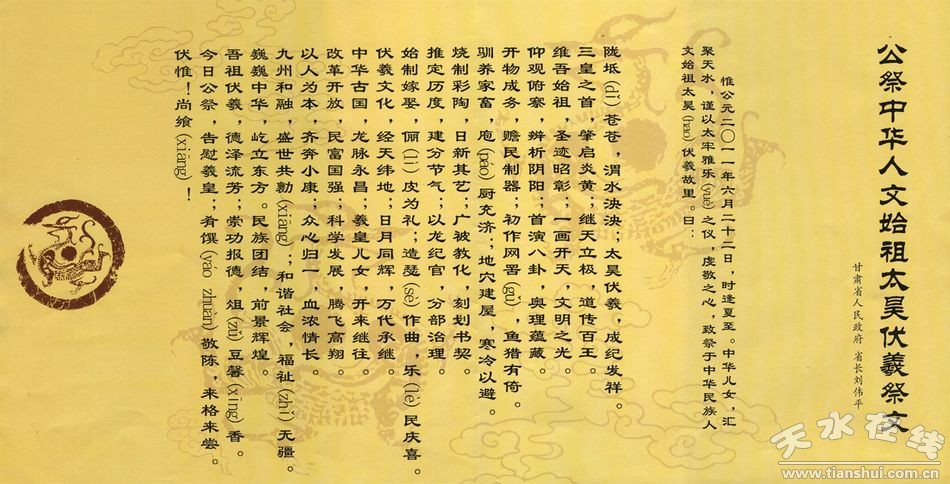 公祭中华人文始祖太昊伏羲祭文
甘肃省人民政府 省长刘伟平
惟公元二〇一一年六月二十二日，时逢夏至。中华儿女，汇
聚天水，谨以太牢雅乐(yuè)之仪，虔敬之心，致祭于中华民族人
文始祖太昊(hào)伏羲故里。曰：
陇坻(dǐ)苍苍，渭水泱泱；太昊伏羲，成纪发祥。
三皇之首，肇启炎黄；继天立极，道传百王。
维吾始祖，圣迹昭彰；一画开天，文明之光。
仰观俯察，辨析阴阳；首演八卦，奥理蕴藏。
开物成务，赡民制器；初作网罟(gǔ)，鱼猎有倚。
驯养家畜，庖(páo)厨充济；地穴建屋，寒冷以避。
烧制彩陶，日新其艺；广被教化，刻划书契。
推定历度，建分节气；以龙纪官，分部治理。
始制嫁娶，俪(lì)皮为礼；造瑟(sè)作曲，乐(lè)民庆喜。
伏羲文化，经天纬地；日月同辉，万代承继。
中华古国，龙脉永昌；羲皇儿女，开来继往。
改革开放，民富国强；科学发展，腾飞高翔。
以人为本，齐奔小康；众心归一，血浓情长。
九州和融，盛世共勷(xiāng)；和谐社会，福祉(zhǐ)无疆。
巍巍中华，屹立东方。民族团结，前景辉煌。
吾祖伏羲，德泽流芳；崇功报德，俎(zǔ)豆馨(xīng)香。
今日公祭，告慰羲皇；肴馔(yáo zhuàn)敬陈，来格来尝。
伏惟！尚飨(xiǎng)！
天水在线
www.tianshui.com.cn